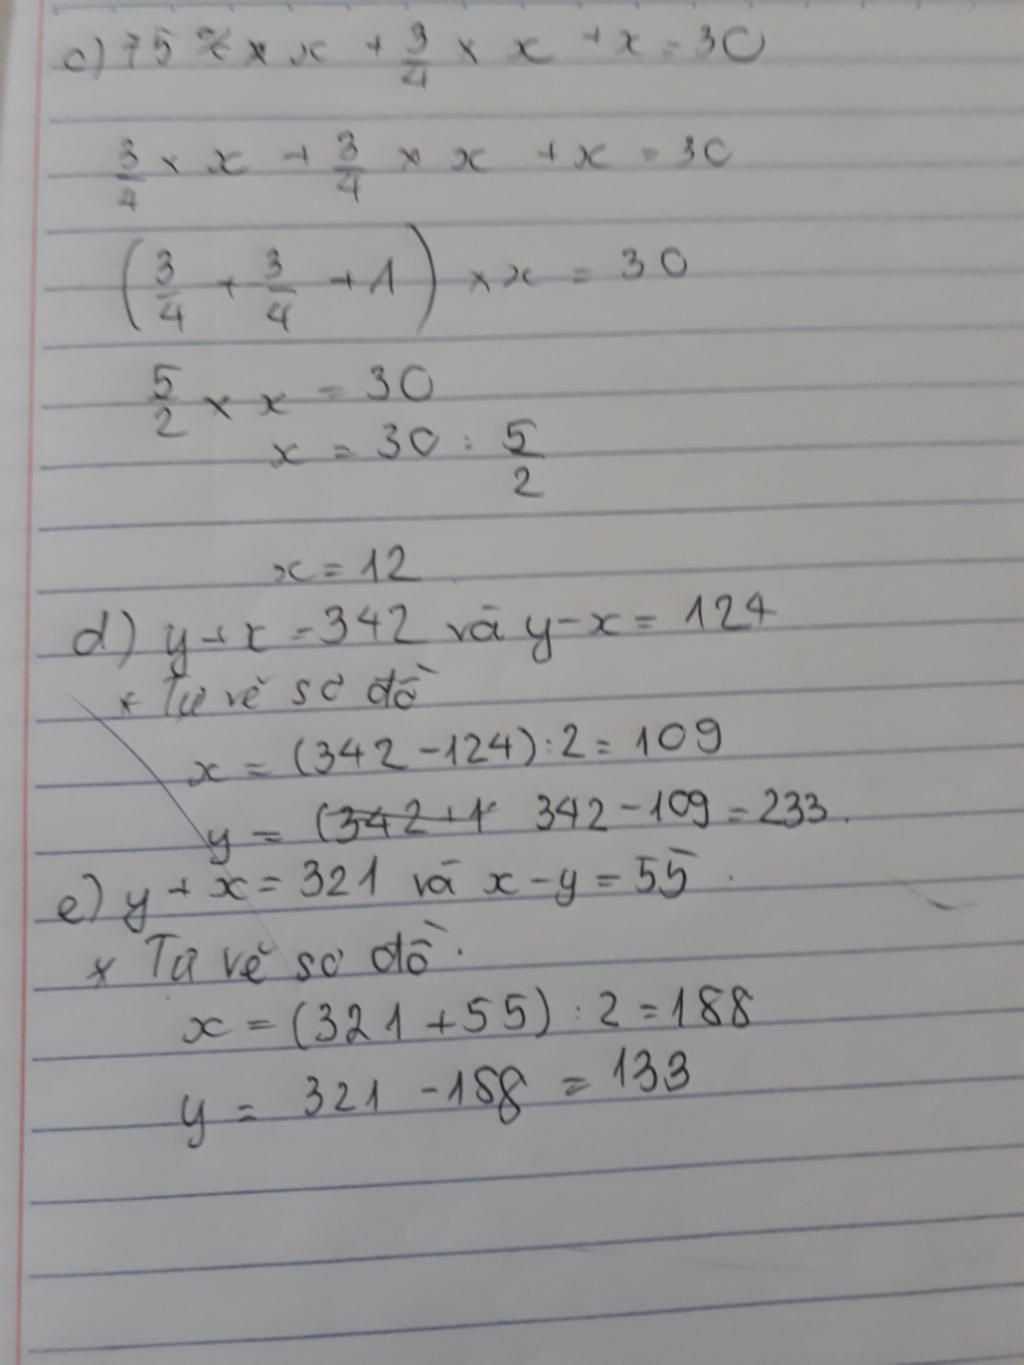 c) 75% × x + 3/4 × x + x = 30
3/4 × x + 3/4 × x + x = 30
(3/4 + 3/4 + 1) × x = 30
5/2 × x = 30
x = 30 : 5/2
x = 12
d) y + x = 342 và y - x = 124
* Tự vẽ sơ đồ
x = (342 - 124) : 2 = 109
y = (342 + 1 342 - 109 = 233.
e) y + x = 321 và x - y = 55.
* Tự vẽ sơ đồ.
x = (321 + 55) : 2 = 188
y = 321 - 188 = 133